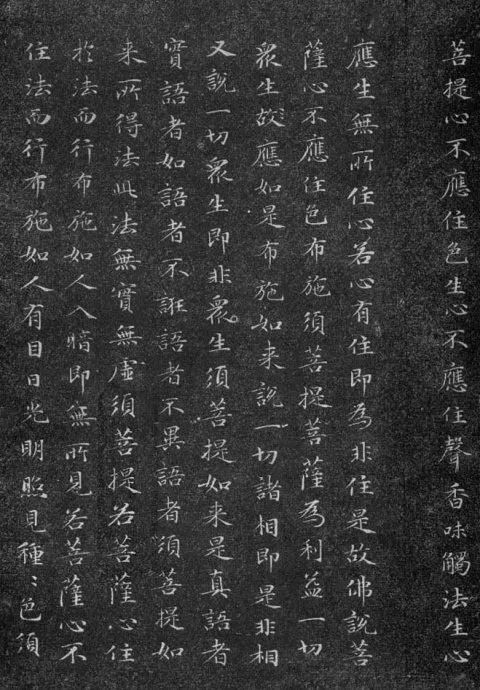 菩提心不應住色生心不應住聲香味觸法生心
應生無所住心若心有住即為非住是故佛說菩
薩心不應住色布施須菩提菩薩為利益一切
眾生故應如是布施如来說一切諸相即是非相
又說一切眾生即非眾生須菩提如来是真語者
實語者如語者不誑語者不異語者須菩提如
来所得法此法無實無虛須菩提若菩薩心住
於法而行布施如人入暗即無所見若菩薩心不
住法而行布施如人有目日光明照見種〻色須